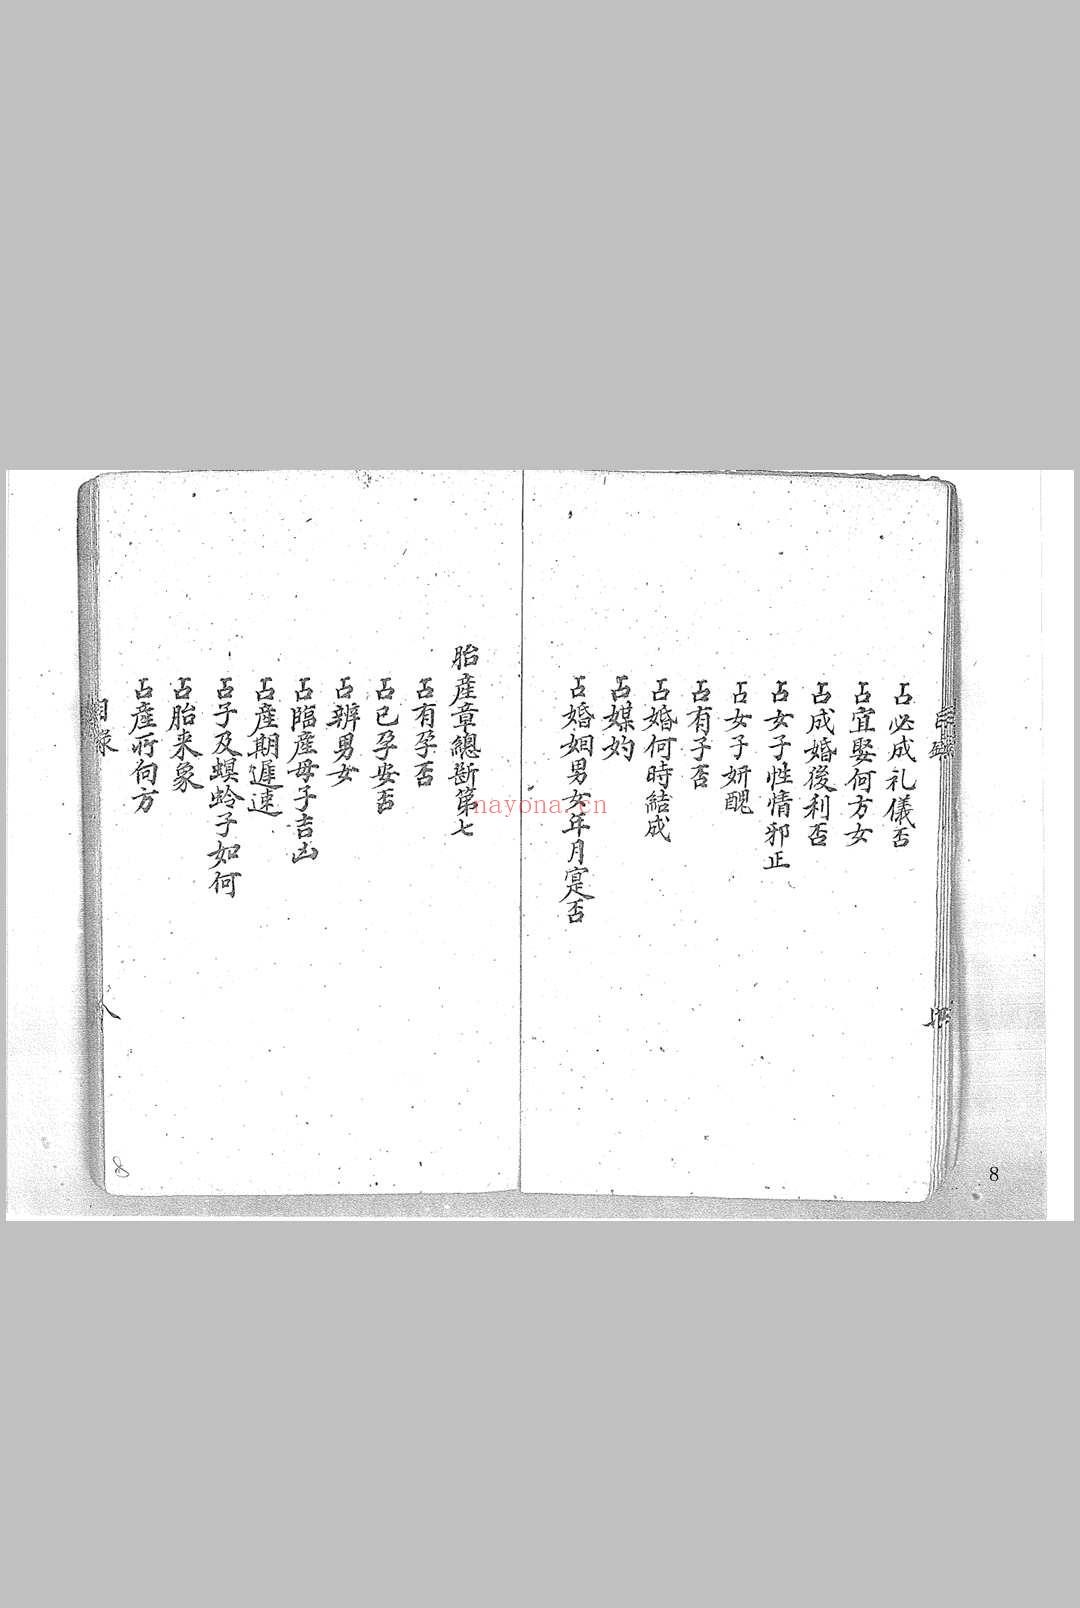 占必成礼儀否
占宜娶何方女
占成婚後利否
占女子性情邪正
占女子妍醜
占有子否
占婚何時結成
占媒妁
占婚姻男女年月寔否
胎産章總斷第七
占有孕否
占已孕安否
占辨男女
占臨産母子吉凶
占産期遲速
占子及螟蛉子如何
占胎来象
占産所向方
目录
八
8
8
nayona.cn